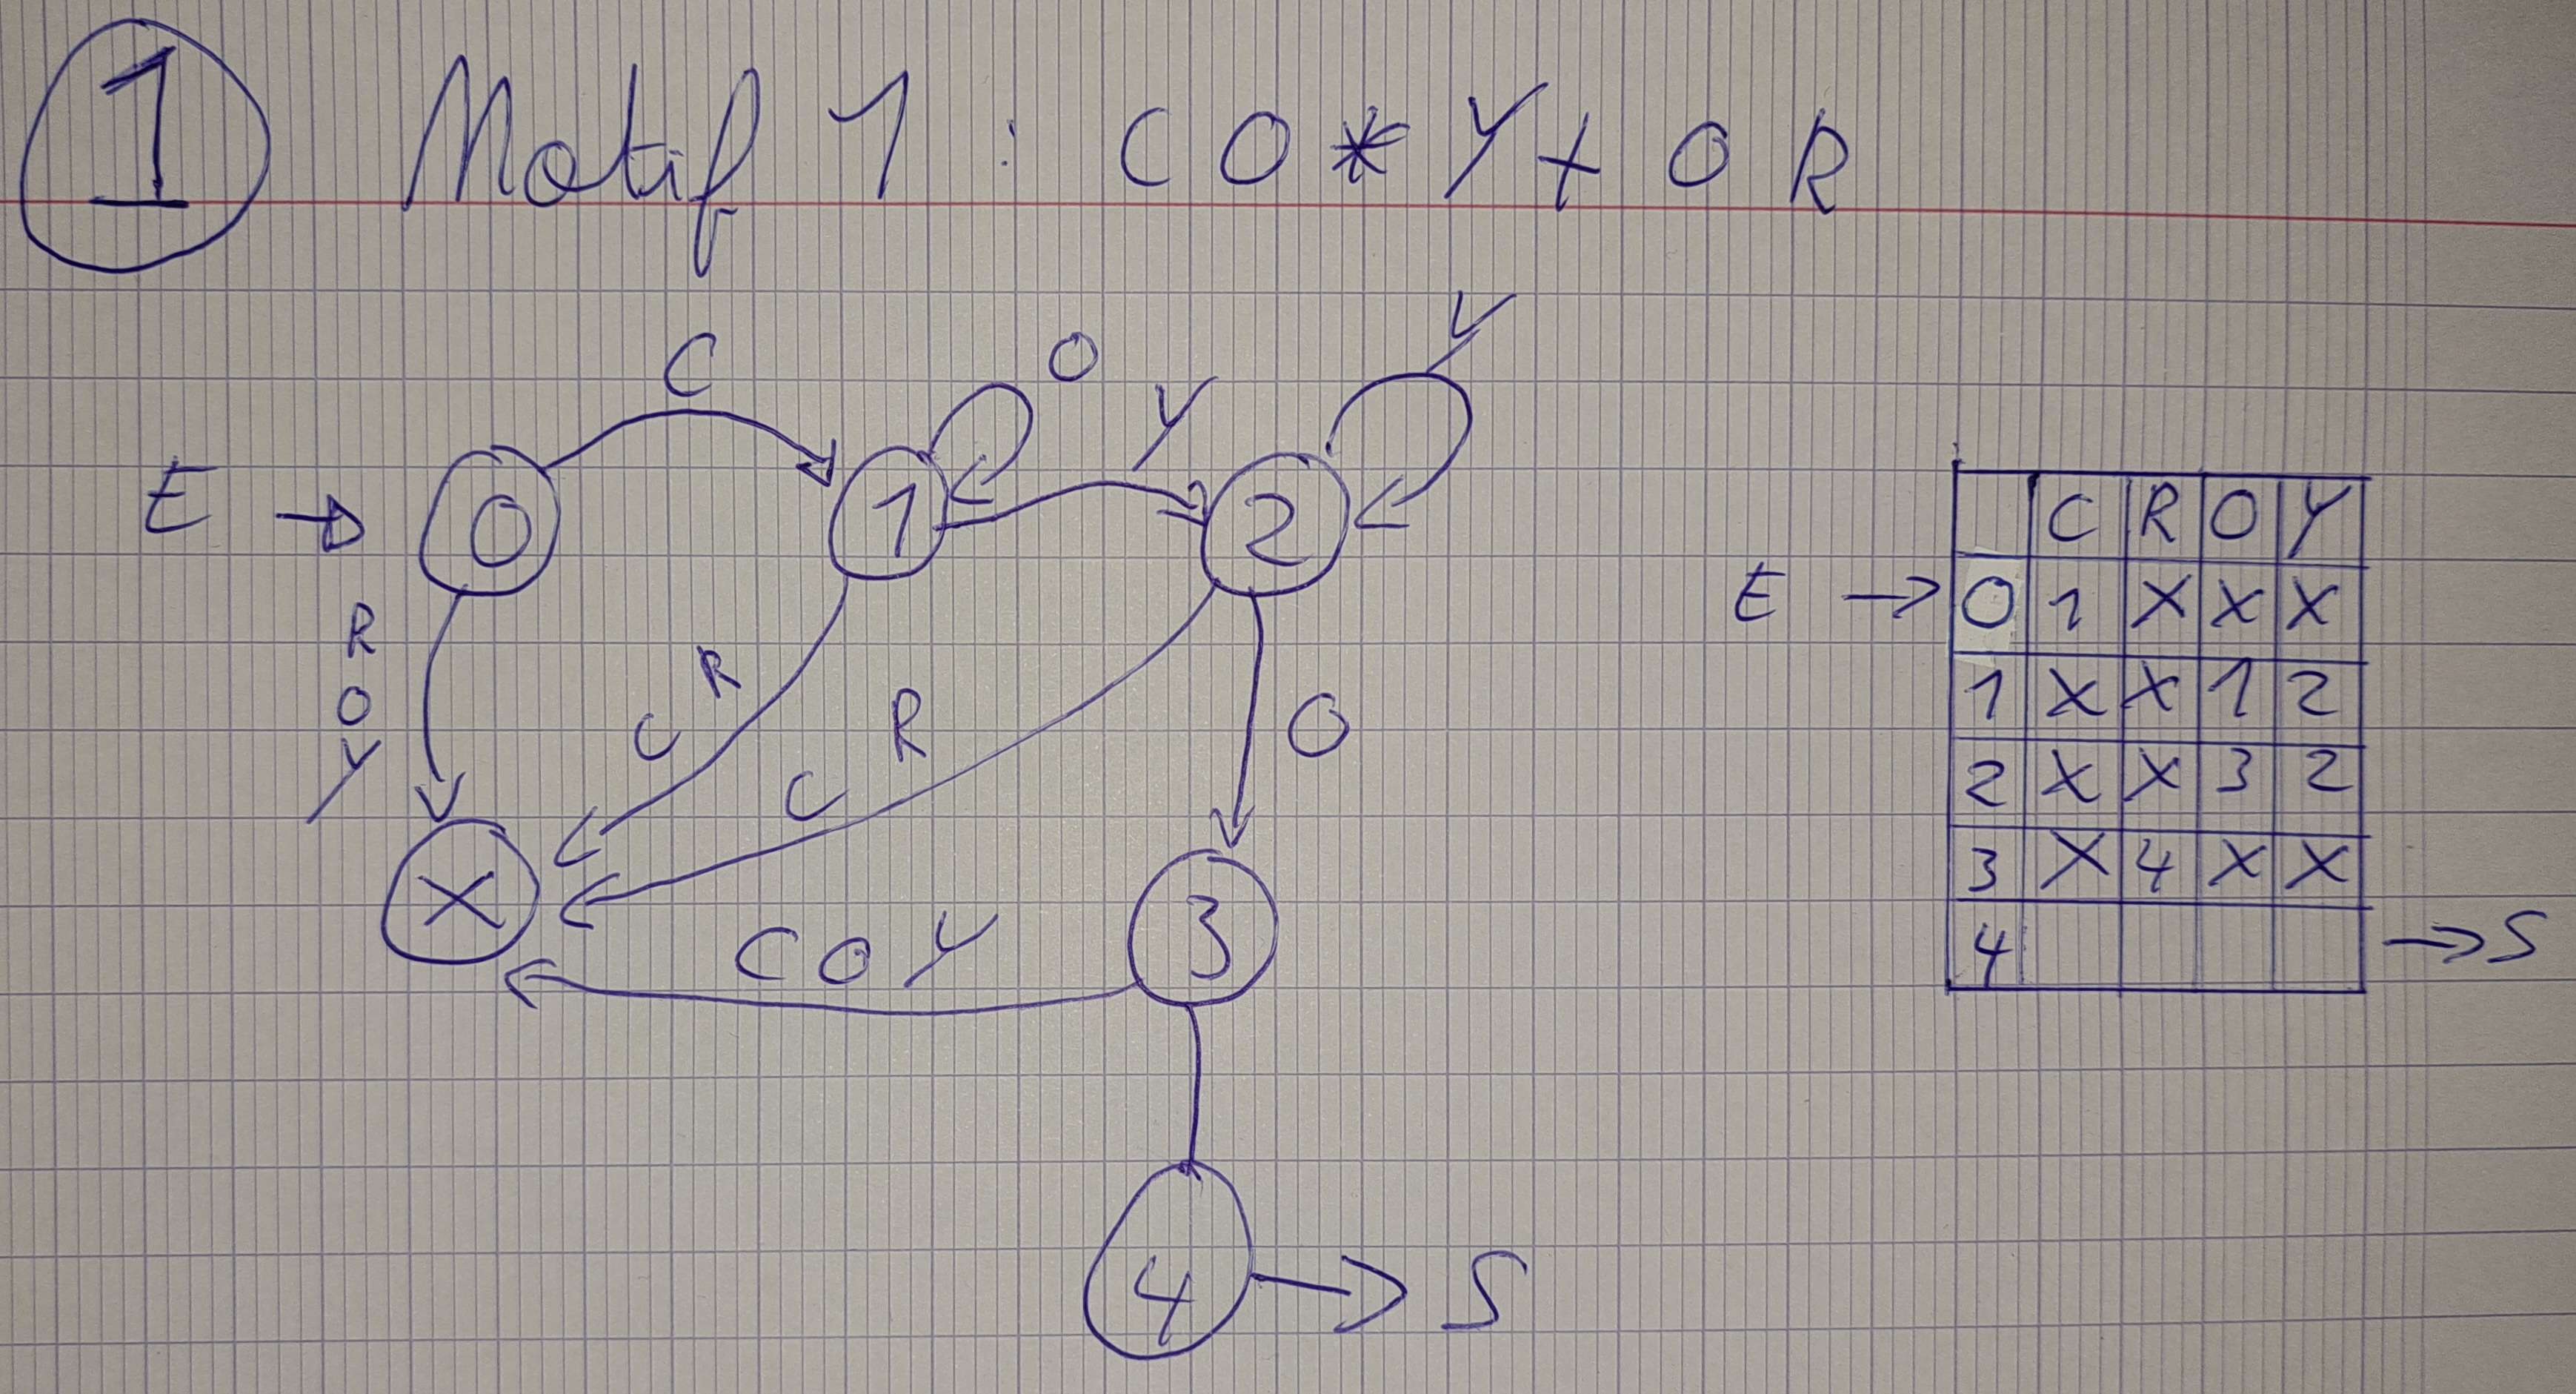 1 Motif 1 : C O * Y + O R
C O Y Y
E → 0 1 2
R O Y
C R
C R
O
X C O Y 3
4 → S
C R O Y
E → 0 1 X X X
1 X X 1 2
2 X X 3 2
3 X 4 X X
4 → S